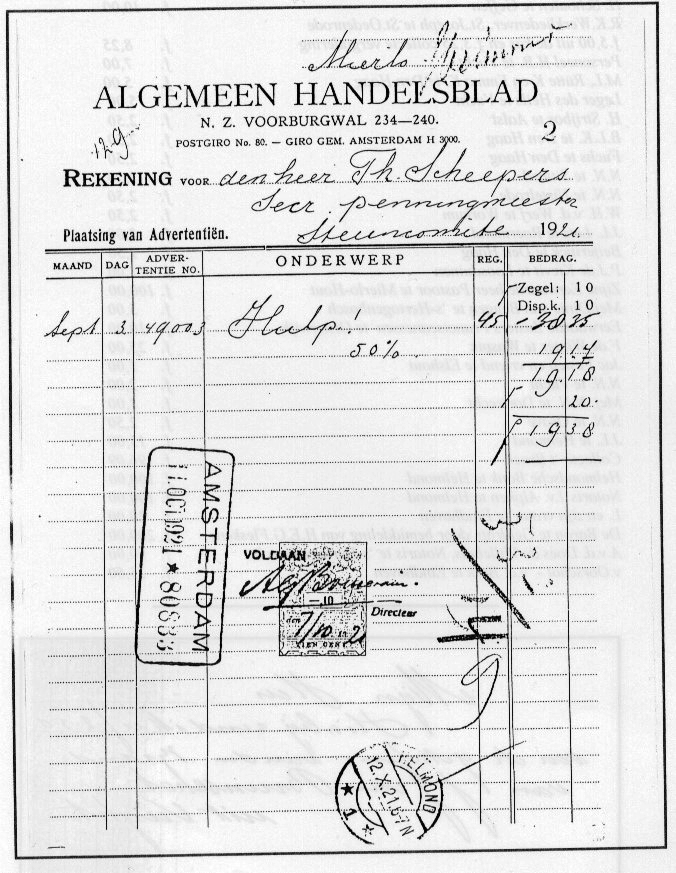 Mierlo Helmond
ALGEMEEN HANDELSBLAD
N. Z. VOORBURGWAL 234—240.
129
POSTGIRO No. 80. — GIRO GEM. AMSTERDAM H 3000.
2
REKENING VOOR den heer Th. Scheepers
Secr. penningmeester
Plaatsing van Advertentiën. Steuncomité 1921
MAAND DAG ADVER-TENTIE NO. ONDERWERP REG. BEDRAG.
Zegel: 10
Disp.k. 10
Sept 3 49003 Hulp! 45 38 35
50% 19 17
19 18
20
19 38
AMSTERDAM
11 OCT 1921 * 80883
VOLDAAN
—10
Directeur
den 7/10 192
TIEN CENT
HELMOND
12.X.21.6-7N
* 1 *